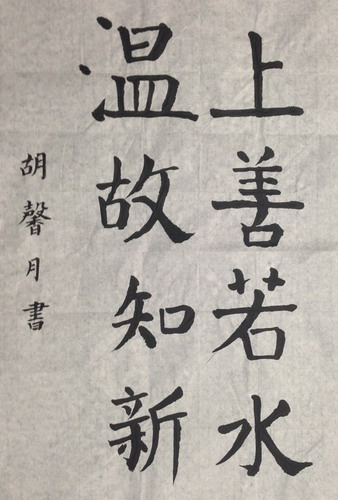 上善若水
温故知新
胡馨月書